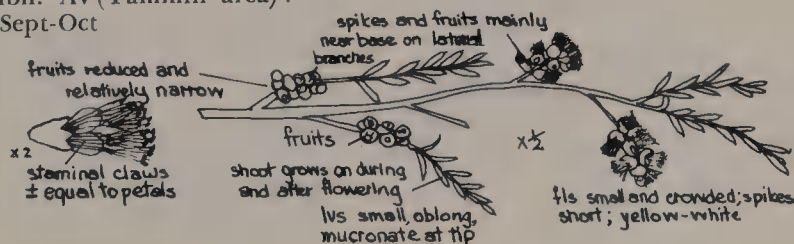 Av (Tammin area).
Sept-Oct
spikes and fruits mainly
near base on lateral
branches
fruits reduced and
relatively narrow
x 2
staminal claws
± equal to petals
fruits
shoot grows on during
and after flowering
lvs small, oblong,
mucronate at tip
x ½
fls small and crowded; spikes
short; yellow-white